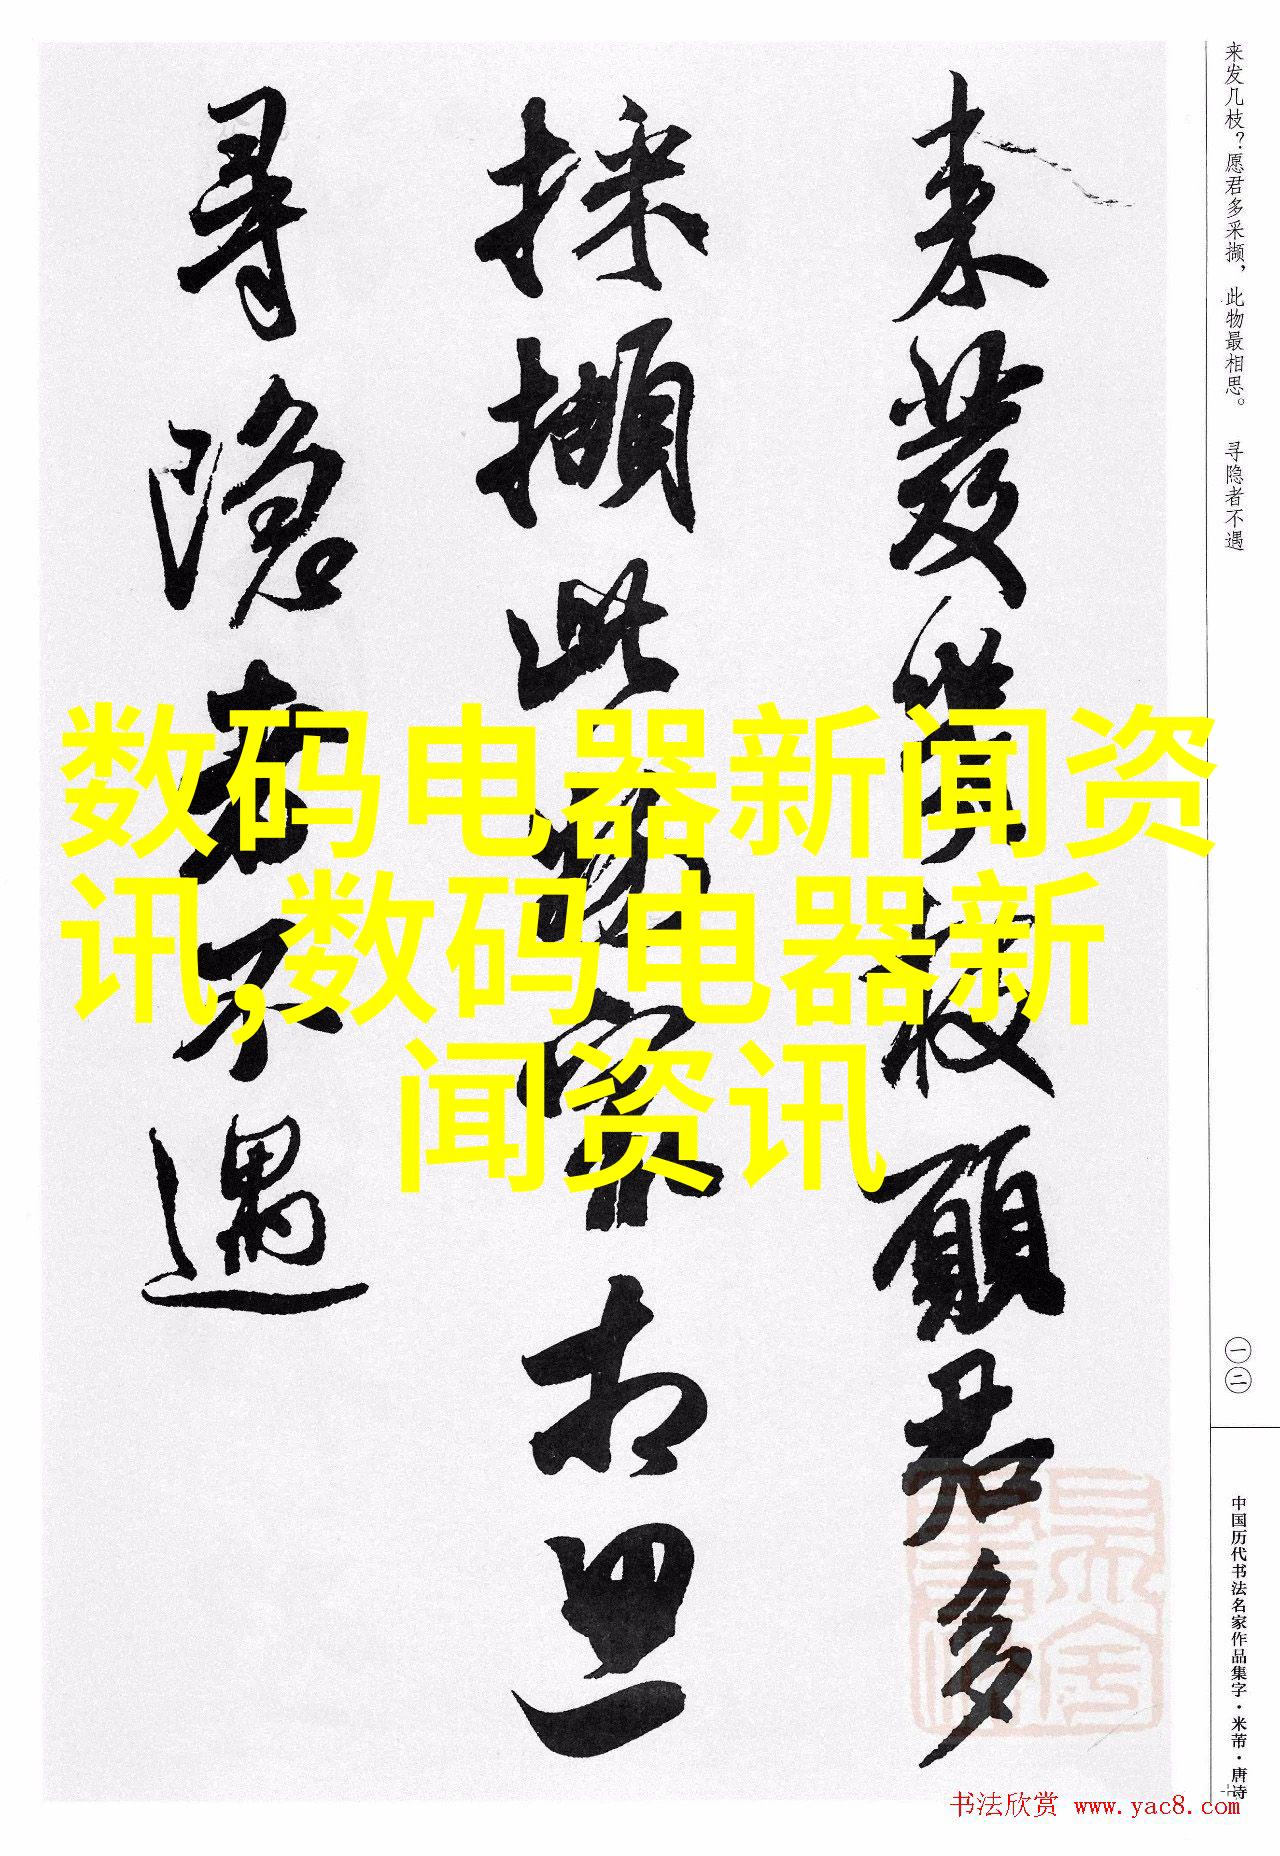 来发几枝？愿君多采撷，此物最相思。 寻隐者不遇
来發幾枝願君多
採擷此物最相思
尋隱者不遇
数码电器新闻资
讯,数码电器新
闻资讯
一二
中国历代书法名家作品集字·米芾·唐诗
书法欣赏 www.yac8.com